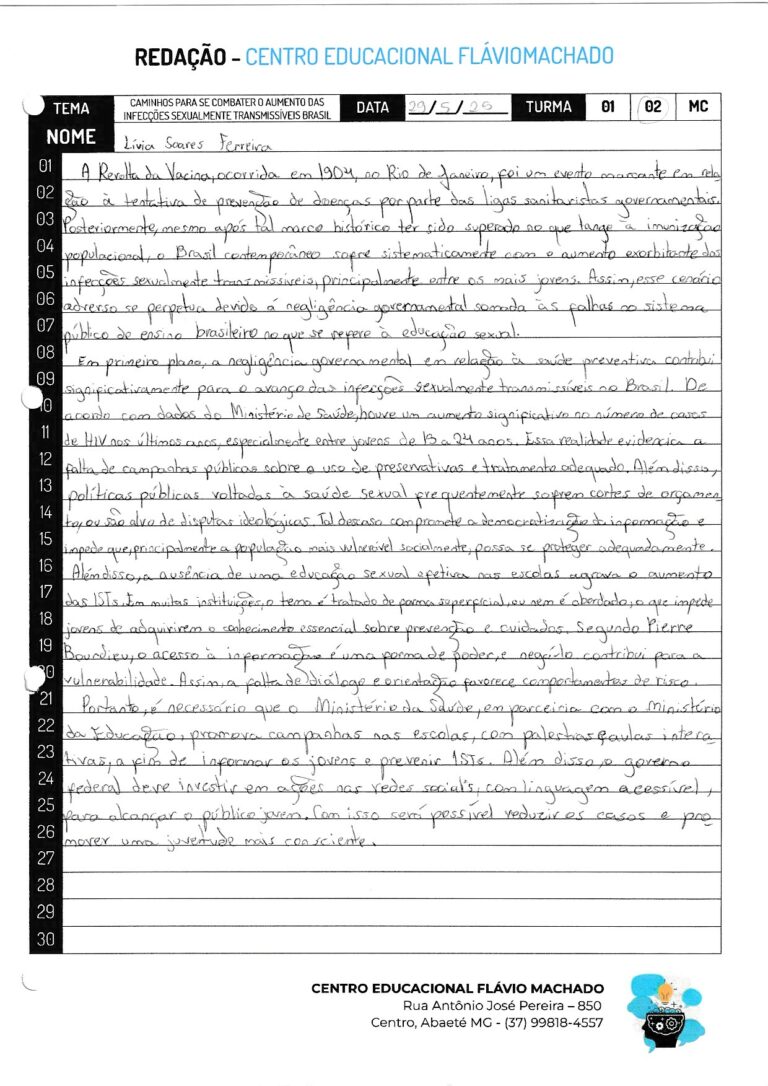 REDAÇÃO - CENTRO EDUCACIONAL FLÁVIOMACHADO
TEMA CAMINHOS PARA SE COMBATER O AUMENTO DAS INFECÇÕES SEXUALMENTE TRANSMISSÍVEIS BRASIL DATA 29/5/25 TURMA 01 02 MC
NOME Lívia Soares Ferreira
01 A Revolta da Vacina, ocorrida em 1904, no Rio de Janeiro, foi um evento marcante em rela
02 ção à tentativa de prevenção de doenças por parte das ligas sanitaristas governamentais.
03 Posteriormente, mesmo após tal marco histórico ter sido superado no que tange à imunização
04 populacional, o Brasil contemporâneo sofre sistematicamente com o aumento exorbitante das
05 infecções sexualmente transmissíveis, principalmente entre os mais jovens. Assim, esse cenário
06 adverso se perpetua devido á negligência governamental somada às falhas no sistema
07 público de ensino brasileiro no que se refere à educação sexual.
08 Em primeiro plano, a negligência governamental em relação à saúde preventiva contribui
09 significativamente para o avanço das infecções sexualmente transmissíveis no Brasil. De
10 acordo com dados do Ministério de Saúde, houve um aumento significativo no número de casos
11 de HIV nos últimos anos, especialmente entre jovens de 13 a 24 anos. Essa realidade evidencia a
12 falta de campanhas públicas sobre o uso de preservativas e tratamento adequado. Além disso,
13 políticas públicas voltadas à saúde sexual frequentemente sofrem cortes de orçamen-
14 to, ou são alvo de disputas ideológicas. Tal descaso compromete a democratização da informação e
15 impede que, principalmente a população mais vulnerável socialmente, possa se proteger adequadamente.
16 Além disso, a ausência de uma educação sexual efetiva nas escolas agrava o aumento
17 das ISTs. Em muitas instituições, o tema é tratado de forma superficial, ou nem é abordado, o que impede
18 jovens de adquirirem o conhecimento essencial sobre prevenção e cuidados. Segundo Pierre
19 Bourdieu, o acesso à informação é uma forma de poder, e negá-lo contribui para a
20 vulnerabilidade. Assim, a falta de diálogo e orientação favorece comportamentos de risco.
21 Portanto, é necessário que o Ministério da Saúde, em parceiria com o Ministério
22 da Educação, promova campanhas nas escolas, com palestras e aulas intera
23 tivas, a fim de informar os jovens e prevenir ISTs. Além disso, o governo
24 federal deve investir em ações nas redes sociais, com linguagem acessível,
25 para alcançar o público jovem. Com isso será possível reduzir os casos e pro
26 mover uma juventude mais consciente.
27
28
29
30
CENTRO EDUCACIONAL FLÁVIO MACHADO
Rua Antônio José Pereira – 850
Centro, Abaeté MG - (37) 99818-4557